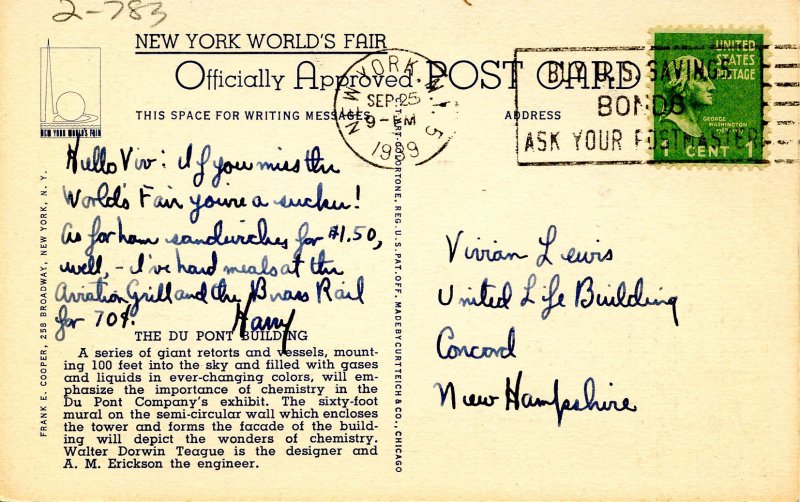 2-783
NEW YORK WORLD'S FAIR
Officially Approved POST CARD
THIS SPACE FOR WRITING MESSAGES
ADDRESS
NEW YORK WORLD'S FAIR
NEW YORK, N.Y. 5
SEP 25
9-AM
1939
BUY U.S. SAVINGS
BONDS
ASK YOUR POSTMASTER
UNITED
STATES
POSTAGE
GEORGE
WASHINGTON
1 CENT 1
Hello Viv: If you miss the
World's Fair you're a sucker!
As for ham sandwiches for $1.50,
well, - I've had meals at the
Aviation Grill and the Brass Rail
for 70¢. Harry
THE DU PONT BUILDING
A series of giant retorts and vessels, mount-
ing 100 feet into the sky and filled with gases
and liquids in ever-changing colors, will em-
phasize the importance of chemistry in the
Du Pont Company's exhibit. The sixty-foot
mural on the semi-circular wall which encloses
the tower and forms the facade of the build-
ing will depict the wonders of chemistry.
Walter Dorwin Teague is the designer and
A. M. Erickson the engineer.
FRANK E. COOPER, 258 BROADWAY, NEW YORK, N. Y.
C.T. ART-COLORTONE, REG. U.S. PAT. OFF. MADE BY CURT TEICH & CO., CHICAGO
Vivian Lewis
United Life Building
Concord
New Hampshire